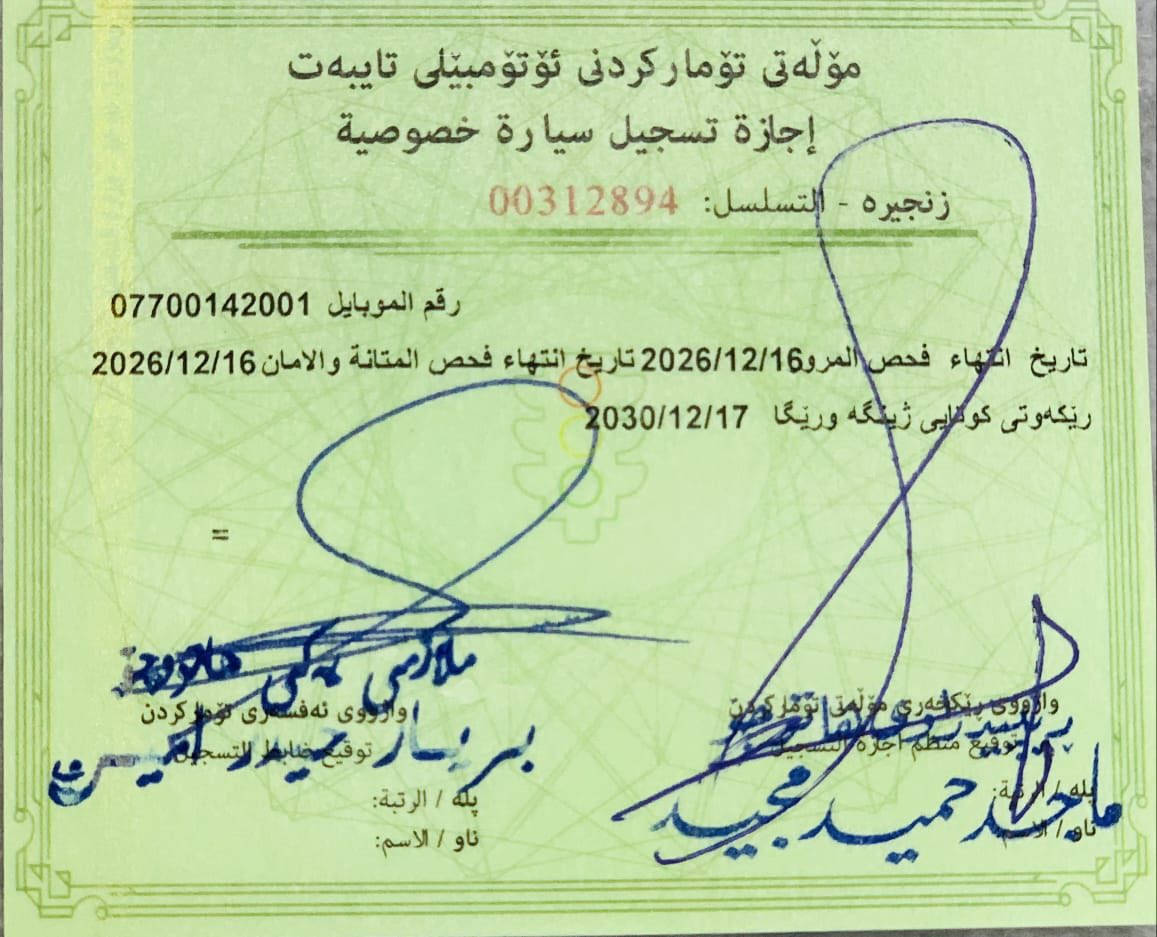 مۆڵەتی تۆمارکردنی ئۆتۆمبێلی تایبەت
إجازة تسجيل سيارة خصوصية
زنجيره - التسلسل: 00312894
رقم الموبايل 07700142001
تاريخ انتهاء فحص المرو2026/12/16 تاريخ انتهاء فحص المتانة والامان 2026/12/16
رێکەوتی کۆتایی ژینگه ورێگا 2030/12/17
=
واژووی ڕێکخەری مۆڵەتی تۆمارکردن
توقيع منظم اجازة التسجيل
پله / الرتبة:
ناو / الاسم:
ماجد حميد مجيد
ملازمی یەکی هاتووچۆ
واژووی ئەفسەری تۆمارکردن
توقيع ضابط التسجيل
حيدر
پله / الرتبة:
ناو / الاسم: